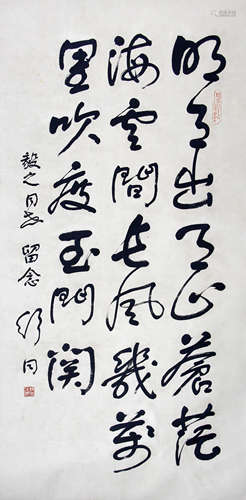 明月出天山蒼茫
海雲間長風幾萬
里吹度玉門關
毅之同志留念
舒同